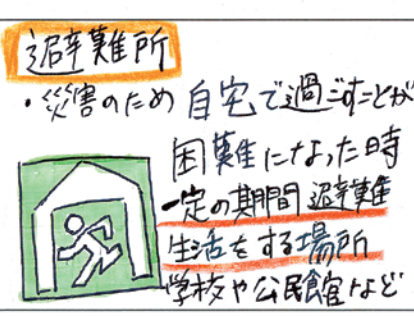 避難所
・災害のため自宅で過ごすことが
困難になった時
一定の期間避難
生活をする場所
学校や公民館など